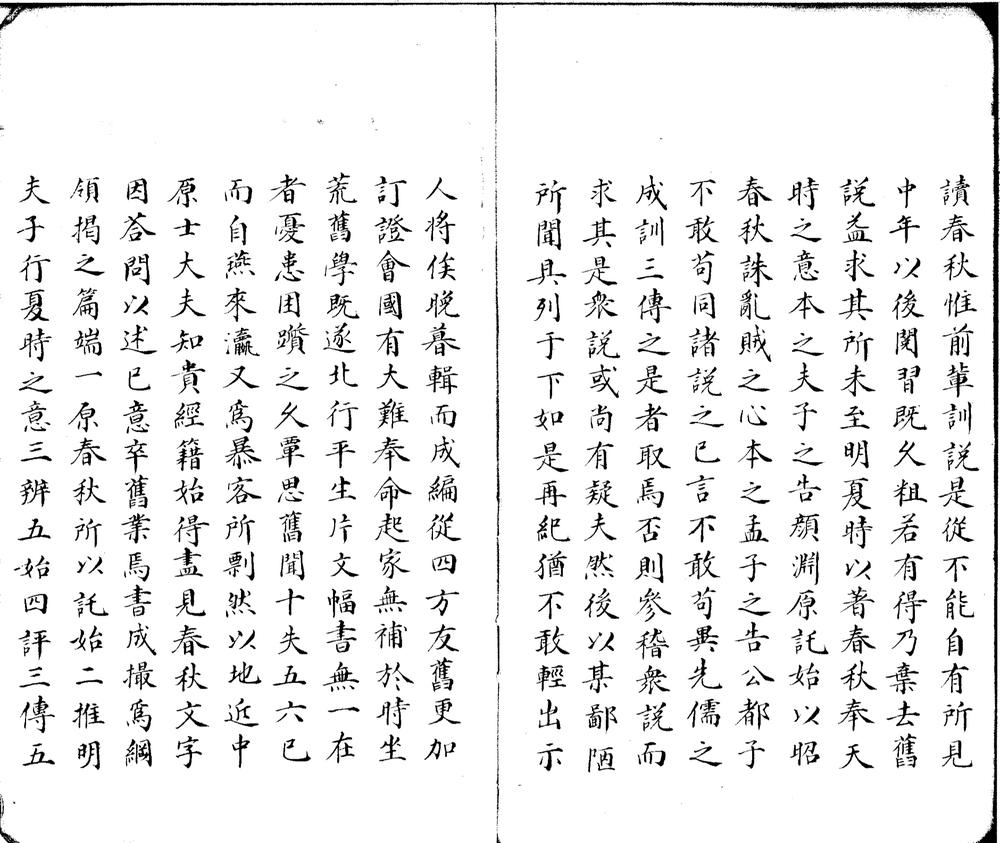 讀春秋惟前輩訓説是從不能自有所見
中年以後閱習既乆粗若有得乃棄去舊
説益求其所未至明夏時以著春秋奉天
時之意本之夫子之告顔淵原託始以昭
春秋誅亂賊之心本之孟子之告公都子
不敢苟同諸説之已言不敢苟異先儒之
成訓三傳之是者取焉否則參稽衆説而
求其是衆説或尚有疑夫然後以某鄙陋
所聞具列于下如是再紀猶不敢輕出示
人將俟晩暮輯而成編從四方友舊更加
訂證會國有大難奉命起家無補於時坐
荒舊學既遂北行平生片文幅書無一在
者憂患困躓之乆覃思舊聞十失五六已
而自燕來瀛又爲暴客所剽然以地近中
原士大夫知貴經籍始得盡見春秋文字
因荅問以述已意卒舊業焉書成撮爲綱
領揭之篇端一原春秋所以託始二推明
夫子行夏時之意三辨五始四評三傳五